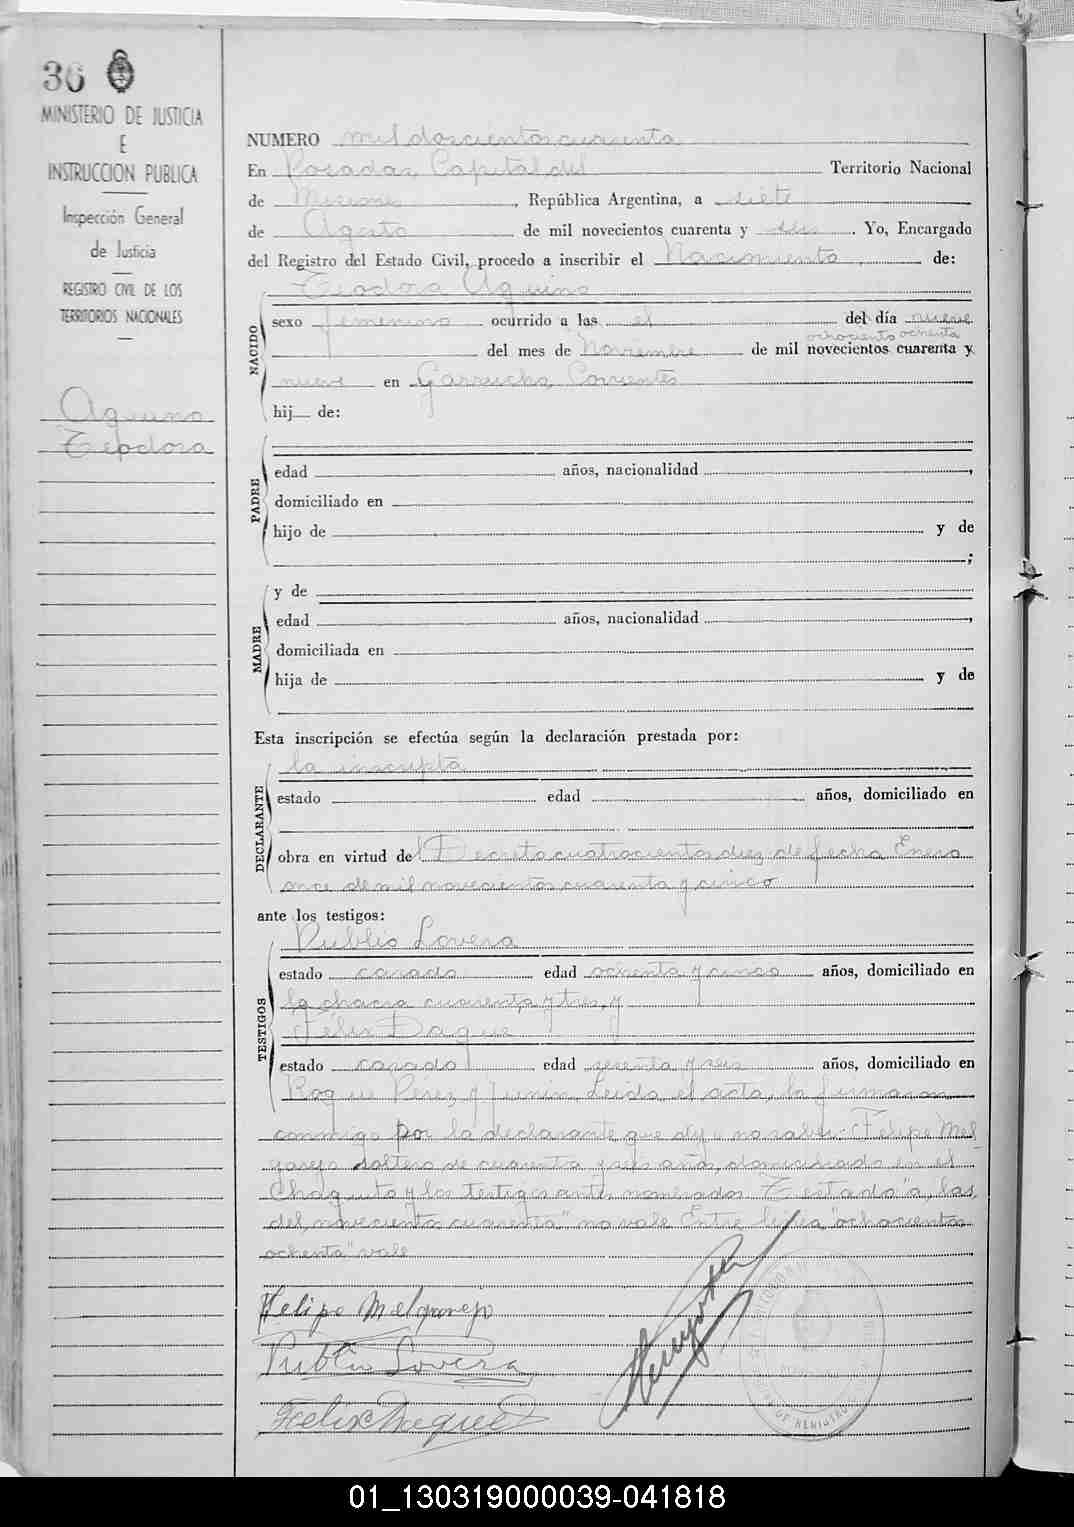 36
MINISTERIO DE JUSTICIA
E
INSTRUCCION PUBLICA
Inspección General
de Justicia
REGISTRO CIVIL DE LOS
TERRITORIOS NACIONALES
Aquino
Teodora
NUMERO mil doscientos cuarenta
En Posadas, Capital del Territorio Nacional
de Misiones, República Argentina, a siete
de Agosto de mil novecientos cuarenta y seis. Yo, Encargado
del Registro del Estado Civil, procedo a inscribir el Nacimiento, de:
Teodora Aquino
NACIDO
sexo femenino ocurrido a las el del día nueve
ochocientos ochenta
del mes de Noviembre de mil novecientos cuarenta y
nueve en Garruchos, Corrientes
hij de:
PADRE
edad años, nacionalidad ,
domiciliado en
hijo de y de
;
MADRE
y de
edad años, nacionalidad ,
domiciliada en
hija de y de
Esta inscripción se efectúa según la declaración prestada por:
DECLARANTE
la inscripta
estado edad años, domiciliado en
obra en virtud del Decreto cuatrocientos diez de fecha Enero
once de mil novecientos cuarenta y cinco
ante los testigos:
TESTIGOS
Publio Lovera
estado casado edad ochenta y cinco años, domiciliado en
la chacra cuarenta y tres, y
Felix Daque
estado casado edad y seis años, domiciliado en
Roque Pérez y Junin. Leida el acta, la firmaron
conmigo por la declarante que dijo no saber: Felipe Mel
garejo soltero de cuarenta y seis años, domiciliado en el
Chaquito y los testigos antes nombrados. T estado "a las
del, novecientos cuarenta" no vale. Entre linea "ochocientos
ochenta" vale
Felipe Melgarejo
Publio Lovera
Felix Daque
01_130319000039-041818